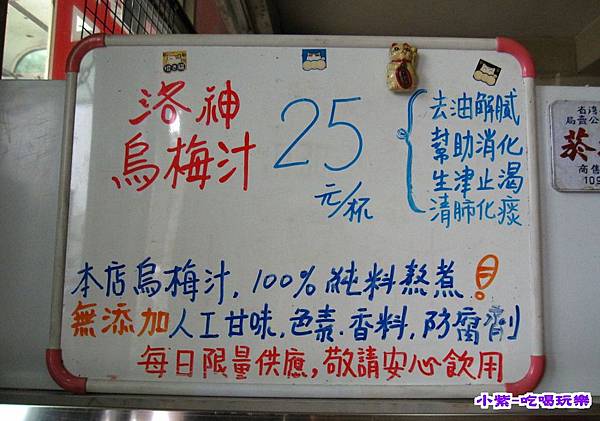 洛神
烏梅汁
25
元/杯
去油解膩
幫助消化
生津止渴
清肺化痰
本店烏梅汁,100%純料熬煮!
無添加人工甘味,色素.香料,防腐劑
每日限量供應,敬請安心飲用
菸
商售
109
小紫-吃喝玩樂